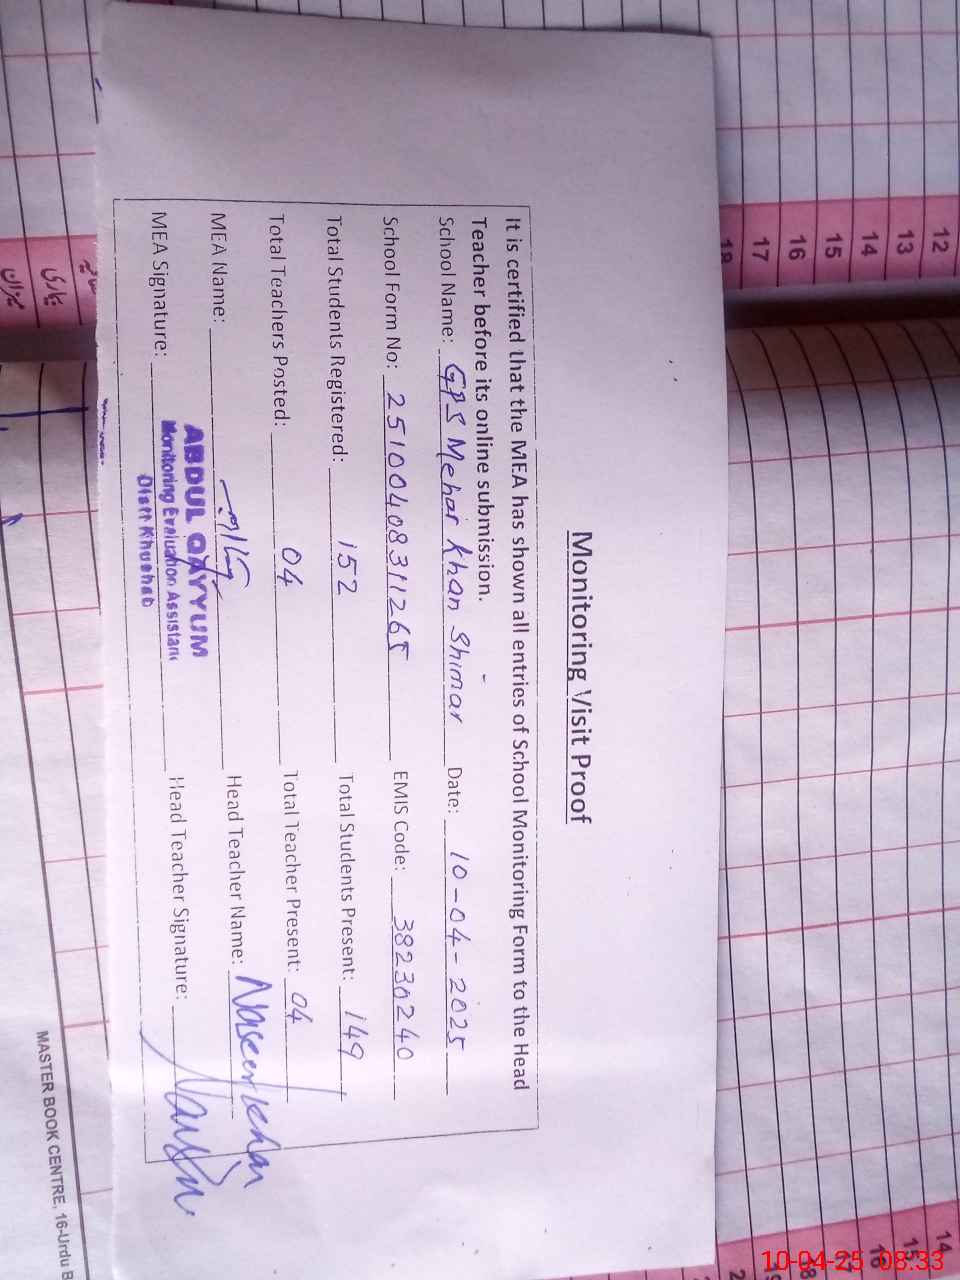 Monitoring Visit Proof
It is certified that the MEA has shown all entries of School Monitoring Form to the Head
Teacher before its online submission.
School Name: GPS Mehar Khan Shimar Date: 10-04-2025
School Form No: 2510040831126 EMIS Code: 38230240
Total Students Registered: 152 Total Students Present: 149
Total Teachers Posted: 04 Total Teacher Present: 04
MEA Name: Head Teacher Name: Naseer Khan
ABDUL QAYYUM
MEA Signature: Monitoring Evaluation Assistant Head Teacher Signature:
Distt Khushab
12
13
14
15
16
17
18
14
15
16
17
MASTER BOOK CENTRE, 16-Urdu B
10-04-25 08:33